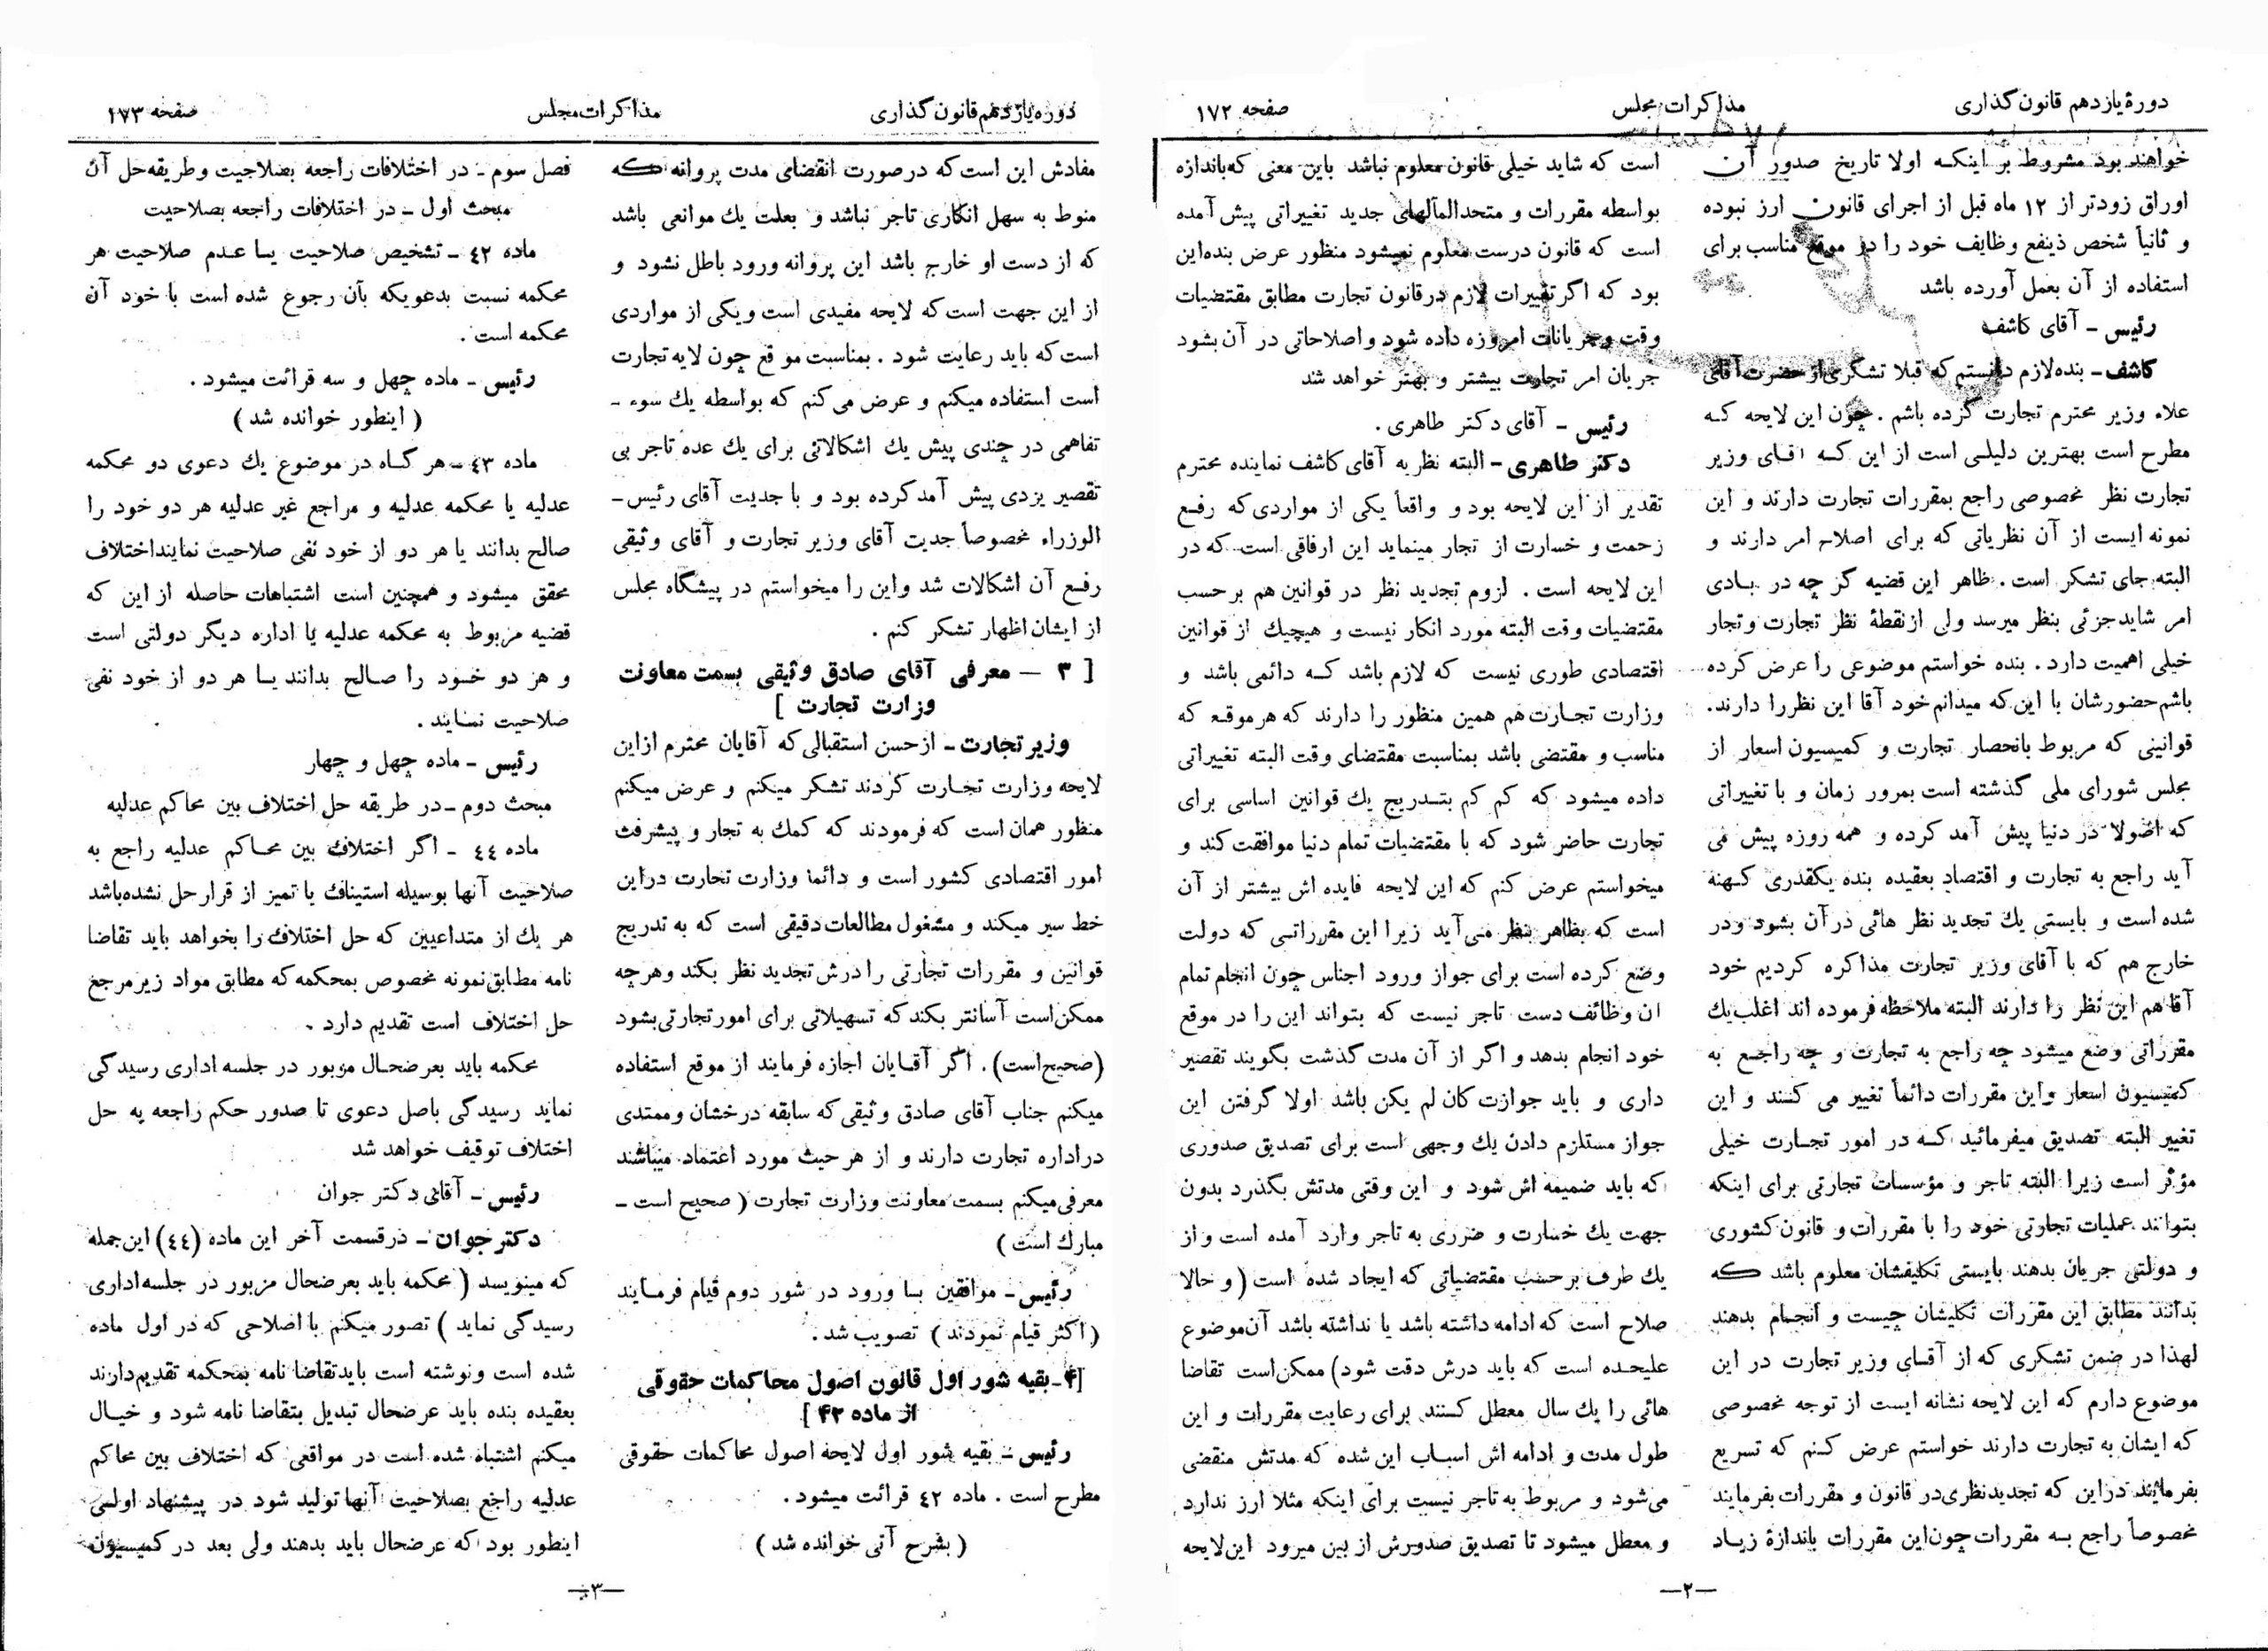 دورهٔ یازدهم قانون گذاری
مذاکرات مجلس
صفحه ۱۷۲
خواهند بود مشروط بر اینکه اولا تاریخ صدور آن
اوراق زودتر از ۱۲ ماه قبل از اجرای قانون ارز نبوده
و ثانیاً شخص ذینفع وظایف خود را در موقع مناسب برای
استفاده از آن بعمل آورده باشد
رئیس - آقای کاشف
کاشف - بنده لازم دانستم که قبلا تشکری از حضرت آقای
علاء وزیر محترم تجارت کرده باشم . چون این لایحه که
مطرح است بهترین دلیلی است از این که آقای وزیر
تجارت نظر مخصوصی راجع بمقررات تجارت دارند و این
نمونه ایست از آن نظریاتی که برای اصلاح امر دارند و
البته جای تشکر است . ظاهر این قضیه گر چه در بادی
امر شاید جزئی بنظر میرسد ولی از نقطهٔ نظر تجارت و تجار
خیلی اهمیت دارد . بنده خواستم موضوعی را عرض کرده
باشم حضورشان با این که میدانم خود آقا این نظر را دارند.
قوانینی که مربوط بانحصار تجارت و کمیسیون اسعار از
مجلس شورای ملی گذشته است بمرور زمان و با تغییراتی
که اصولا در دنیا پیش آمد کرده و همه روزه پیش می
آید راجع به تجارت و اقتصاد بعقیده بنده یکقدری کهنه
شده است و بایستی یك تجدید نظر هائی در آن بشود و در
خارج هم که با آقای وزیر تجارت مذاکره کردیم خود
آقا هم این نظر را دارند البته ملاحظه فرموده اند اغلب یك
مقرراتی وضع میشود چه راجع به تجارت و چه راجع به
کمیسیون اسعار و این مقررات دائماً تغییر می کنند و این
تغییر البته تصدیق میفرمائید که در امور تجارت خیلی
مؤثر است زیرا البته تاجر و مؤسسات تجارتی برای اینکه
بتوانند عملیات تجارتی خود را با مقررات و قانون کشوری
و دولتی جریان بدهند بایستی تکلیفشان معلوم باشد که
بدانند مطابق این مقررات تکلیشان چیست و انجام بدهند
لهذا در ضمن تشکری که از آقای وزیر تجارت در این
موضوع دارم که این لایحه نشانه ایست از توجه مخصوصی
که ایشان به تجارت دارند خواستم عرض کنم که تسریع
بفرمائند در این که تجدید نظری در قانون و مقررات بفرمایند
مخصوصاً راجع به مقررات چون این مقررات باندازهٔ زیاد
است که شاید خیلی قانون معلوم نباشد باین معنی که باندازه
بواسطه مقررات و متحدالمآلهای جدید تغییراتی پیش آمده
است که قانون درست معلوم نمیشود منظور عرض بنده این
بود که اگر تغییرات لازم در قانون تجارت مطابق مقتضیات
وقت و جریانات امروزه داده شود و اصلاحاتی در آن بشود
جریان امر تجارت بیشتر و بهتر خواهد شد
رئیس - آقای دکتر طاهری .
دکتر طاهری - البته نظر به آقای کاشف نماینده محترم
تقدیر از این لایحه بود و واقعاً یکی از مواردی که رفع
زحمت و خسارت از تجار مینماید این ارفاقی است که در
این لایحه است . لزوم تجدید نظر در قوانین هم بر حسب
مقتضیات وقت البته مورد انکار نیست و هیچیك از قوانین
اقتصادی طوری نیست که لازم باشد که دائمی باشد و
وزارت تجارت هم همین منظور را دارند که هر موقع که
مناسب و مقتضی باشد بمناسبت مقتضای وقت البته تغییراتی
داده میشود که کم کم بتدریج یك قوانین اساسی برای
تجارت حاضر شود که با مقتضیات تمام دنیا موافقت کند و
میخواستم عرض کنم که این لایحه فایده اش بیشتر از آن
است که بظاهر بنظر می آید زیرا این مقرراتی که دولت
وضع کرده است برای جواز ورود اجناس چون انجام تمام
ان وظائف دست تاجر نیست که بتواند این را در موقع
خود انجام بدهد و اگر از آن مدت گذشت بگویند تقصیر
داری و باید جوازت کان لم یکن باشد اولا گرفتن این
جواز مستلزم دادن یك وجهی است برای تصدیق صدوری
که باید ضمیمه اش شود و این وقتی مدتش بگذرد بدون
جهت یك خسارت و ضرری به تاجر وارد آمده است و از
یك طرف بر حسب مقتضیاتی که ایجاد شده است ( و حالا
صلاح است که ادامه داشته باشد یا نداشته باشد آن موضوع
علیحده است که باید درش دقت شود) ممکن است تقاضا
هائی را یك سال معطل کنند برای رعایت مقررات و این
طول مدت و ادامه اش اسباب این شده که مدتش منقضی
می شود و مربوط به تاجر نیست برای اینکه مثلا ارز ندارد
و معطل میشود تا تصدیق صدورش از بین میرود این لایحه
—۲—
دوره یازدهم قانون گذاری
مذاکرات مجلس
صفحه ۱۷۳
مفادش این است که در صورت انقضای مدت پروانه که
منوط به سهل انکاری تاجر نباشد و بعلت یك موانعی باشد
که از دست او خارج باشد این پروانه ورود باطل نشود و
از این جهت است که لایحه مفیدی است و یکی از مواردی
است که باید رعایت شود . بمناسبت موقع چون لایه تجارت
است استفاده میکنم و عرض می کنم که بواسطه یك سوء -
تفاهمی در چندی پیش یك اشکالاتی برای یك عده تاجر بی
تقصیر یزدی پیش آمد کرده بود و با جدیت آقای رئیس -
الوزراء مخصوصاً جدیت آقای وزیر تجارت و آقای وثیقی
رفع آن اشکالات شد و این را میخواستم در پیشگاه مجلس
از ایشان اظهار تشکر کنم .
[ ۳ - معرفی آقای صادق وثیقی بسمت معاونت
وزارت تجارت ]
وزیر تجارت - از حسن استقبالی که آقایان محترم از این
لایحه وزارت تجارت کردند تشکر میکنم و عرض میکنم
منظور همان است که فرمودند که کمك به تجار و پیشرفت
امور اقتصادی کشور است و دائما وزارت تجارت در این
خط سیر میکند و مشغول مطالعات دقیقی است که به تدریج
قوانین و مقررات تجارتی را درش تجدید نظر بکند و هر چه
ممکن است آسانتر بکند که تسهیلاتی برای امور تجارتی بشود
(صحیح است) . اگر آقایان اجازه فرمایند از موقع استفاده
میکنم جناب آقای صادق وثیقی که سابقه درخشان و ممتدی
در اداره تجارت دارند و از هر حیث مورد اعتماد میباشند
معرفی میکنم بسمت معاونت وزارت تجارت ( صحیح است -
مبارك است )
رئیس - موافقین با ورود در شور دوم قیام فرمایند
( اکثر قیام نمودند ) تصویب شد .
[۴ - بقیه شور اول قانون اصول محاکمات حقوقی
از ماده ۴۲ ]
رئیس - بقیه شور اول لایحه اصول محاکمات حقوقی
مطرح است . ماده ٤٢ قرائت میشود .
( بشرح آتی خوانده شد )
فصل سوم - در اختلافات راجعه بصلاحیت و طریقه حل آن
مبحث اول - در اختلافات راجعه بصلاحیت
ماده ٤٢ - تشخیص صلاحیت یا عدم صلاحیت هر
محکمه نسبت بدعویکه بآن رجوع شده است با خود آن
محکمه است .
رئیس - ماده چهل و سه قرائت میشود .
( اینطور خوانده شد )
ماده ٤٣ - هر گاه در موضوع یك دعوی دو محکمه
عدلیه یا محکمه عدلیه و مراجع غیر عدلیه هر دو خود را
صالح بدانند یا هر دو از خود نفی صلاحیت نمایند اختلاف
محقق میشود و همچنین است اشتباهات حاصله از این که
قضیه مربوط به محکمه عدلیه یا اداره دیگر دولتی است
و هر دو خود را صالح بدانند یا هر دو از خود نفی
صلاحیت نمایند .
رئیس - ماده چهل و چهار
مبحث دوم - در طریقه حل اختلاف بین محاکم عدلیه
ماده ٤٤ - اگر اختلاف بین محاکم عدلیه راجع به
صلاحیت آنها بوسیله استیناف یا تمیز از قرار حل نشده باشد
هر یك از متداعیین که حل اختلاف را بخواهد باید تقاضا
نامه مطابق نمونه مخصوص بمحکمه که مطابق مواد زیر مرجع
حل اختلاف است تقدیم دارد .
محکمه باید بعرضحال مزبور در جلسه اداری رسیدگی
نماید رسیدگی باصل دعوی تا صدور حکم راجعه به حل
اختلاف توقیف خواهد شد
رئیس - آقای دکتر جوان
دکتر جوان - در قسمت آخر این ماده (٤٤) این جمله
که مینویسد ( محکمه باید بعرضحال مزبور در جلسه اداری
رسیدگی نماید ) تصور میکنم با اصلاحی که در اول ماده
شده است و نوشته است باید تقاضا نامه بمحکمه تقدیم دارند
بعقیده بنده باید عرضحال تبدیل بتقاضا نامه شود و خیال
میکنم اشتباه شده است در مواقعی که اختلاف بین محاکم
عدلیه راجع بصلاحیت آنها تولید شود در پیشنهاد اولی
اینطور بود که عرضحال باید بدهند ولی بعد در کمیسیون
—۳—